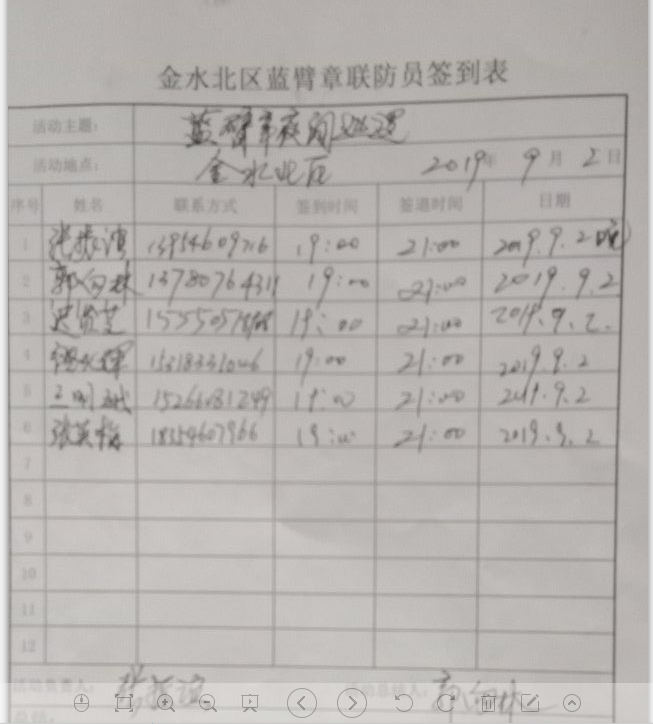 金水北区蓝臂章联防员签到表
活动主题: 蓝臂章夜间巡逻
活动地点: 金水北区 2019年 9月 2日
序号 姓名 联系方式 签到时间 签退时间 日期
1 张振滨 13954609216 19:00 21:00 2019.9.2晚
2 郭向林 13780764311 19:00 21:00 2019.9.2
3 迟贤芝 19:00 21:00 2019.9.2.
4 19:00 21:00 2019.9.2
5 王明 15266081249 19:00 21:00 2019.9.2
6 张英梅 18354607966 19:00 21:00 2019.9.2
7
8
9
10
11
12
活动负责人: 张振滨 活动总结人: 郭向林
总结: